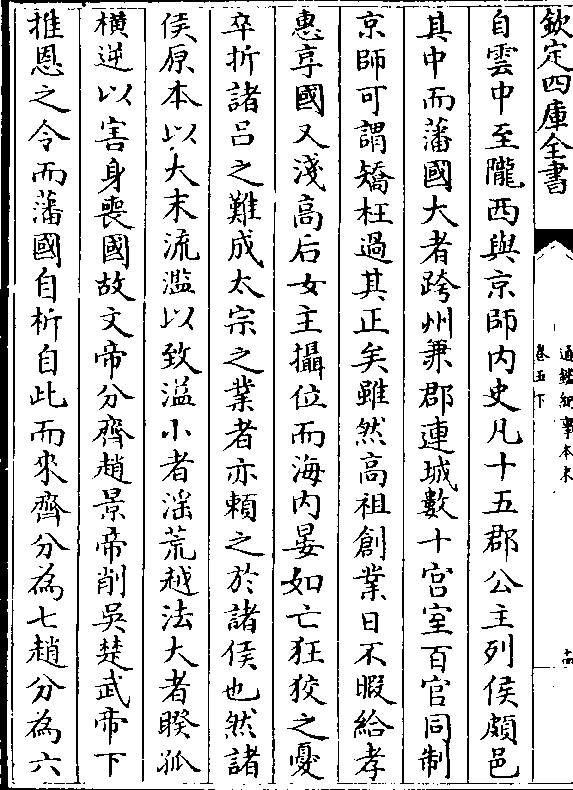 欽定四庫全書
通鑑紀事本末
卷五下
十四
自雲中至隴西與京師内史凡十五郡公主列侯頗邑
其中而藩國大者跨州兼郡連城數十宫室百官同制
京師可謂矯枉過其正矣雖然髙祖創業日不暇給孝
惠享國又淺髙后女主攝位而海内晏如亡狂狡之憂
卒折諸吕之難成太宗之業者亦頼之於諸侯也然諸
侯原本以大末流濫以致溢小者滛荒越法大者睽孤
横逆以害身喪國故文帝分齊趙景帝削吳楚武帝下
推恩之令而藩國自析自此而來齊分為七趙分為六